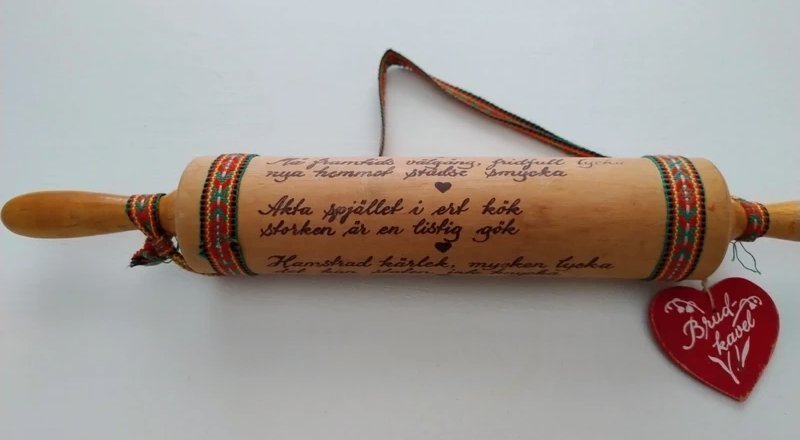 Må framtids välgång, fridfull lycka
nya hemmet städse smycka
Akta spjället i ert kök
storken är en listig gök
Hamstrad kärlek, mycken lycka
Brud-
kavel